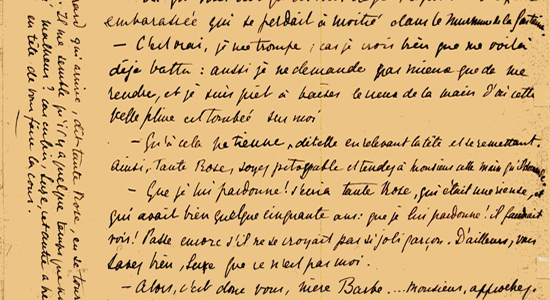 embarassée qui se perdait à moitié dans le murmure de la fontaine
— C'est vrai, je me trompe ; car je crois bien que me voilà
déjà battu : aussi je ne demande pas mieux que de me
rendre, et je suis prêt à baiser le revers de la main d'où cette
belle pluie est tombée sur moi
— Qu'à cela ne tienne, dit-elle en relevant la tête et se remettant.
Ainsi, Tante Rose, soyez pitoyable et tendez à monsieur cette main qu'il
— Que je lui pardonne ! s'écria tante Rose, qui était une rieuse, et
qui avait bien quelque cinquante ans : que je lui pardonne ! il faudrait
voir ! Passe encore s'il ne se croyait pas si joli garçon. D'ailleurs, vous
savez bien, Suze que ce n'est pas moi.
— Alors, c'est donc vous, mère Barbe .... Monsieur, approchez.
qui arrive, dit tante Rose, en se
Il me semble qu'il y a quelque temps que
malheur ? car enfin, Suze,
en tête de vous faire la cour.